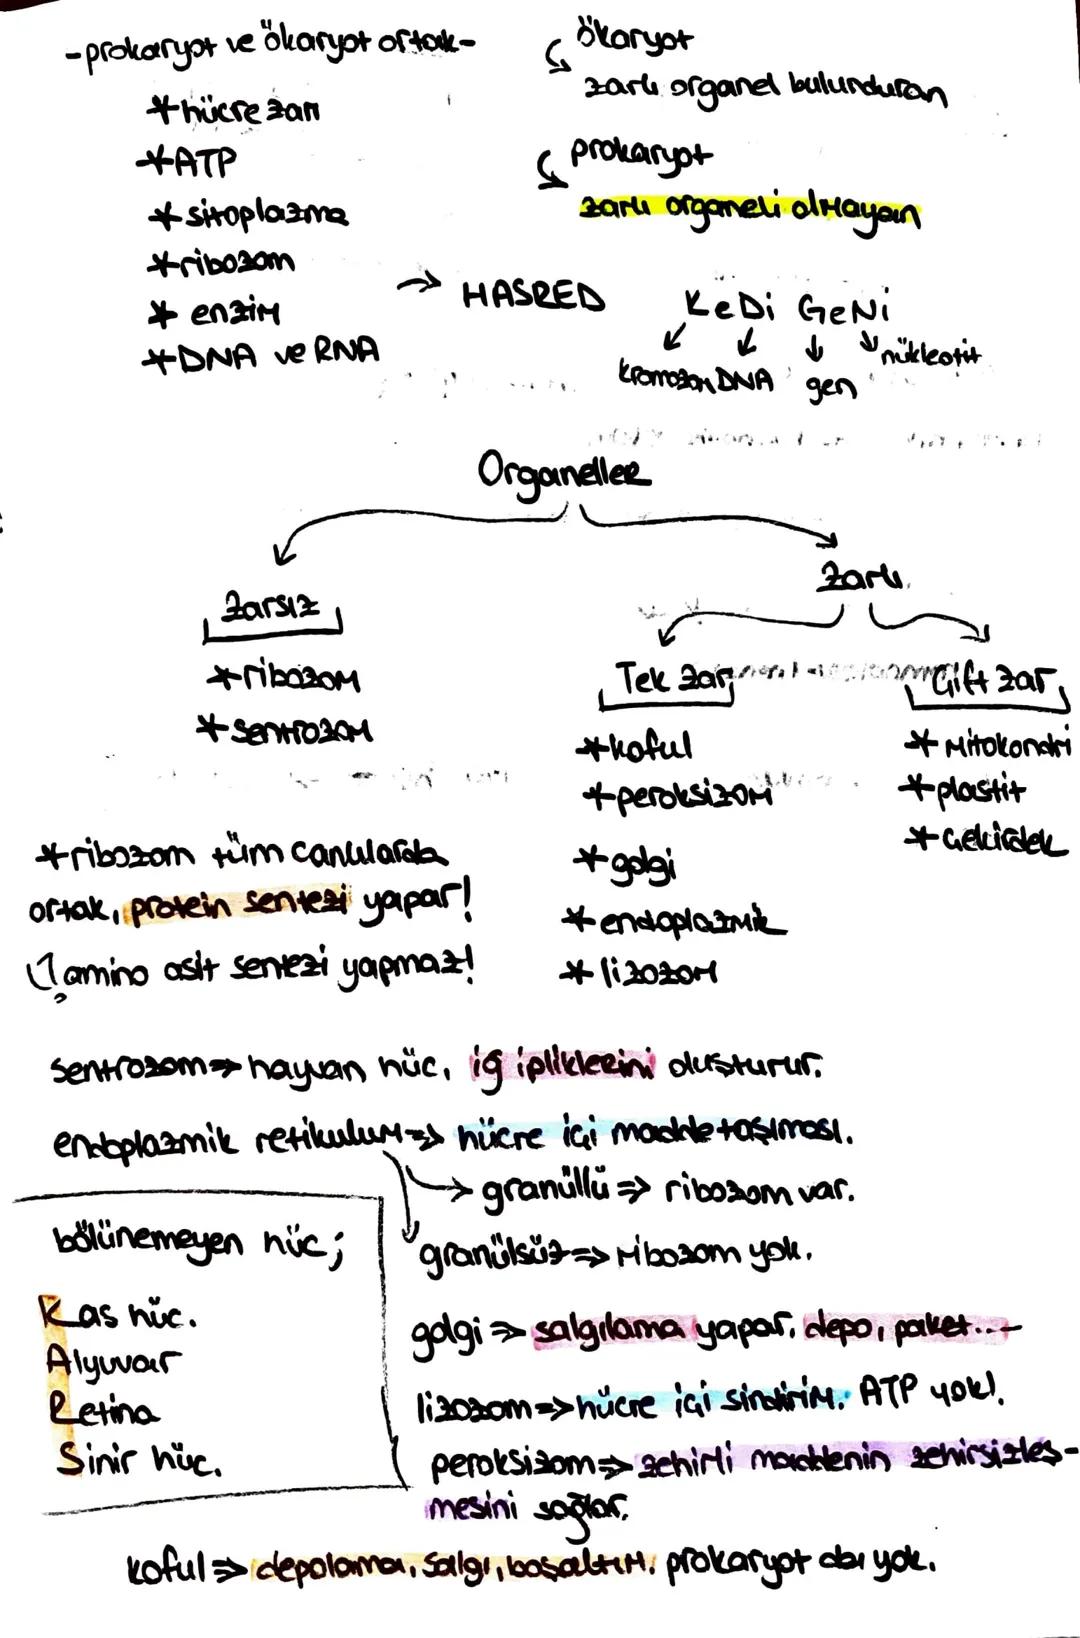 -prokaryot ve ökaryot ortak-
*hücre zarı
*ATP
*sitoplazma
*ribozom
*enzim
*DNA ve RNA
→ HASRED
ökaryot
zarlı organel bulunduran
prokaryot
zarlı organeli olmayan
KeDi GeNi
kromozom DNA gen nükleotit
Organeller
Zarsız
*ribozom
*sentrozom
Zarlı
Tek zar
*koful
*peroksizom
*golgi
*endoplazmik
*lizozom
Çift zar
*mitokondri
*plastit
*çekirdek
*ribozom tüm canlılarda
ortak, protein sentezi yapar!
amino asit sentezi yapmaz!
sentrozom⇒ hayvan hüc, iğ ipliklerini oluşturur.
endoplazmik retikulum⇒ hücre içi madde taşıması.
→ granüllü ⇒ ribozom var.
granülsüz⇒ ribozom yok.
bölünemeyen hüc;
Kas hüc.
Alyuvar
Retina
Sinir hüc.
golgi ⇒ salgılama yapar, depo, paket...
lizozom⇒ hücre içi sindirim. ATP yok!
peroksizom⇒ zehirli maddenin zehirsizleş-
mesini sağlar.
koful⇒ depolama, salgı, boşaltım. prokaryot da yok.